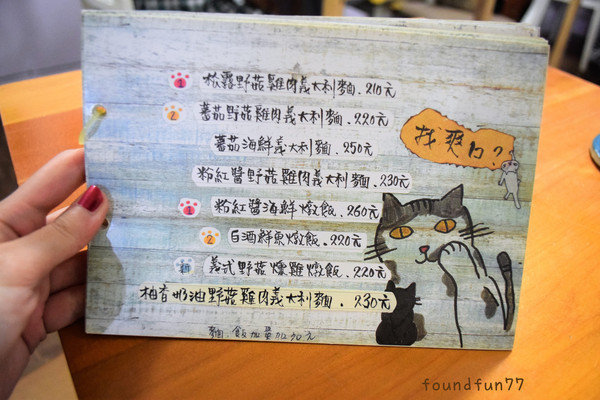 1 松露野菇雞肉義大利麵.210元
2 蕃茄野菇雞肉義大利麵.220元
蕃茄海鮮義大利麵.250元
粉紅醬野菇雞肉義大利麵.230元
1 粉紅醬海鮮燉飯.260元
2 白酒鮮魚燉飯.220元
義式野菇燻雞燉飯.220元
柚香奶油野菇雞肉義大利麵.230元
麵.飯加量加20元
找爽ㄉ?
foundfun77